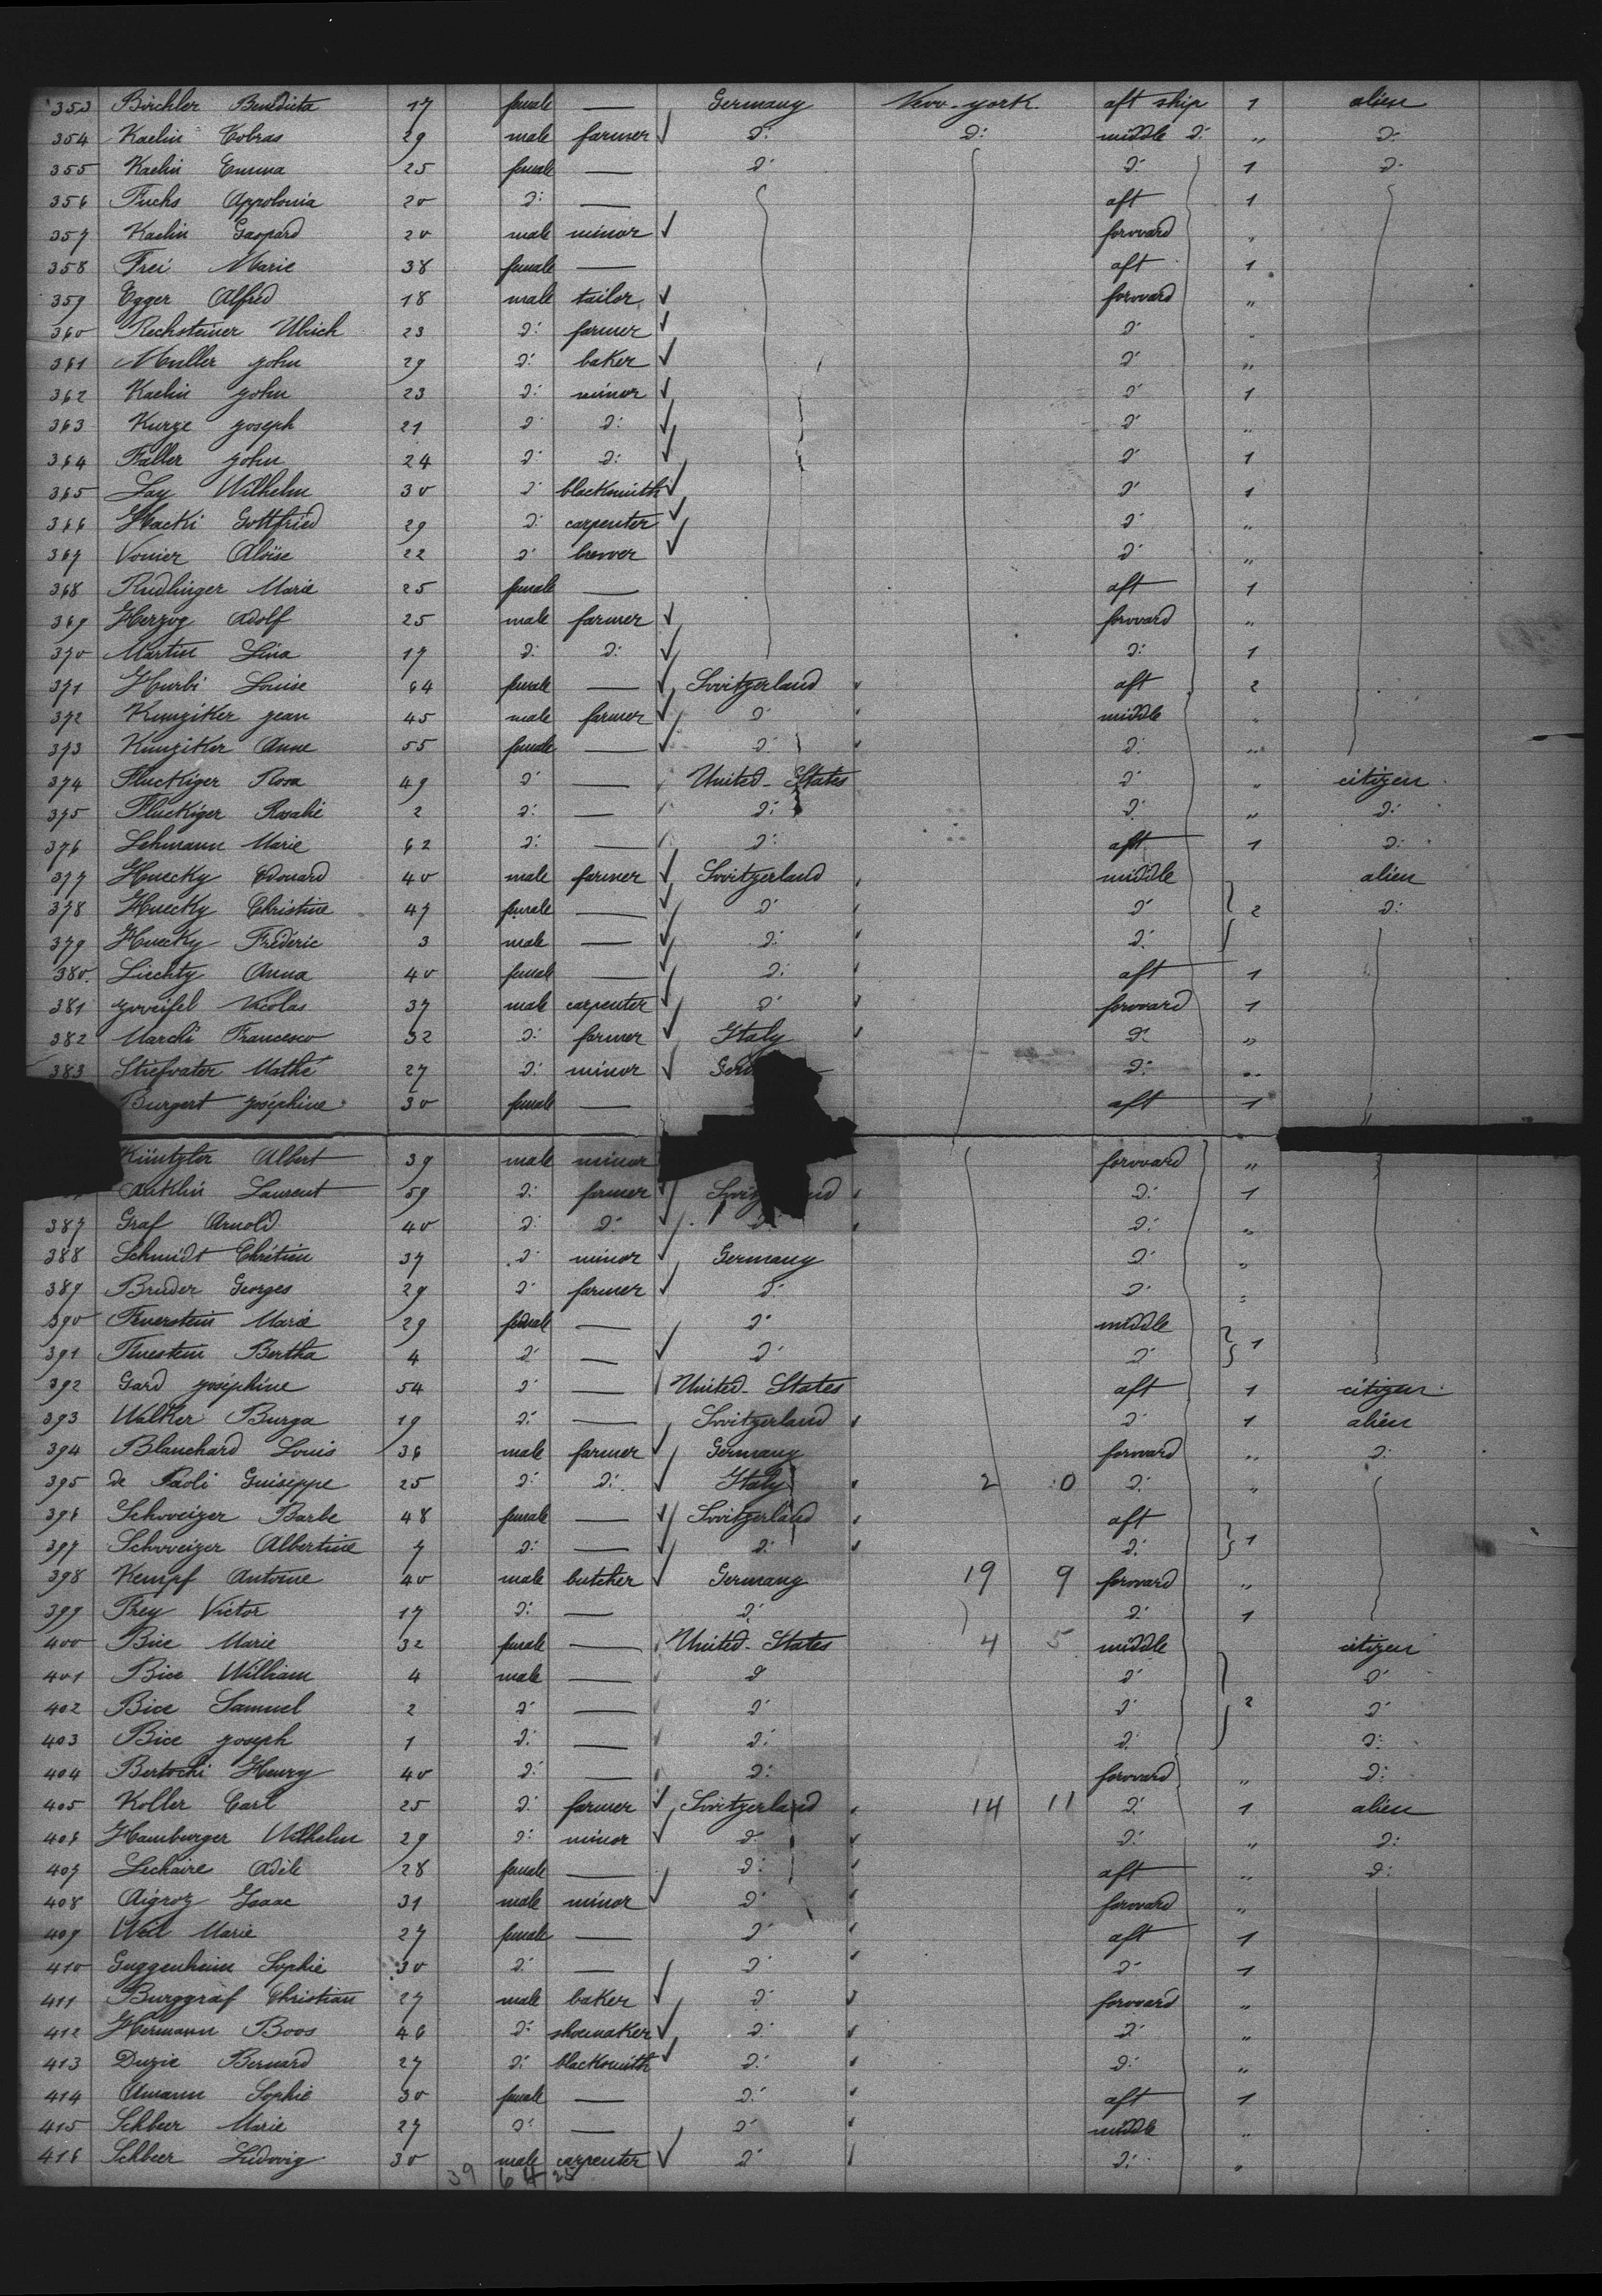 353 Birchler Benedicta 17 female — Germany New-york aft ship 1 alien
354 Kaelin Cobras 29 male farmer d: d: middle d: " d:
355 Kaelin Emma 25 female — d: d: 1 d:
356 Fuchs Appolonia 20 d: — aft 1
357 Kaelin Gaspard 20 male minor forward "
358 Frei Marie 38 female — aft 1
359 Egger Alfred 18 male tailor forward "
360 Rechsteiner Ulrich 23 d: farmer d: "
361 Muller john 29 d: baker d: "
362 Kaelin john 23 d: minor d: 1
363 Kurze joseph 21 d: d: d: "
364 Faller john 24 d: d: d: 1
365 Lay Wilhelm 30 d: blacksmith d: 1
366 Hacki Gottfried 29 d: carpenter d: "
367 Vonier Aloïse 22 d: brewer d: "
368 Rudlinger Marie 25 female — aft 1
369 Herzog Adolf 25 male farmer forward "
370 Martin Lina 17 d: d: d: 1
371 Hurbi Louise 64 female — Switzerland aft 2
372 Kunziker jean 45 male farmer d: middle "
373 Kunziker Anne 55 female — d: d: "
374 Fluckiger Rosa 49 d: — United-States d: " citizen
375 Fluckiger Rosalie 2 d: — d: d: " d:
376 Lehmann Marie 62 d: — d: aft 1 d:
377 Huecky Edouard 40 male farmer Switzerland middle alien
378 Huecky Christine 47 female — d: d: 2 d:
379 Huecky Frédéric 3 male — d: d:
380. Liechty Anna 40 female — d: aft 1
381 zweifel Nicolas 37 male carpenter d: forward 1
382 Marchi Francesco 32 d: farmer Italy d: "
383 Stiefvater Mathé 27 d: minor Ger d: "
Burgert joséphine 30 female — aft 1
Küntzler Albert 39 male minor forward "
Laurent 59 d: farmer Switz nd d: 1
387 Graf Arnold 40 d: d: d: d: "
388 Schmidt Chrétien 37 d: minor Germany d: "
389 Bruder Georges 29 d: farmer d: d: "
390 Feuerstein Marie 29 female — d: middle
391 Fuestein Bertha 4 d: — d: d: 1
392 Gard joséphine 54 d: — United-States aft 1 citizen
393 Walker Burga 19 d: — Switzerland d: 1 alien
394 Blanchard Louis 36 male farmer Germany forward " d:
395 de Paoli Guiseppe 25 d: d: Italy 2 0 d: "
396 Schweizer Barbe 48 female — Switzerland aft
397 Schweizer Albertine 7 d: — d: d: 1
398 Kempf Antoine 40 male butcher Germany 19 9 forward "
399 Prey Victor 17 d: — d: d: 1
400 Bice Marie 32 female — United-States 4 5 middle citizen
401 Bice William 4 male — d: d: d:
402 Bice Samuel 2 d: — d: d: 2 d:
403 Bice joseph 1 d: — d: d: d:
404 Bertochi Henry 40 d: — d: forward " d:
405 Koller Carl 25 d: farmer Switzerland 14 11 d: 1 alien
406 Hamburger Wilhelm 29 d: minor d: d: " d:
407 Lechaire Adèle 28 female — d: aft " d:
408 Aigroz Isaac 31 male minor d: forward "
409 Weil Marie 27 female — d: aft 1
410 Guggenheim Sophie 30 d: — d: d: 1
411 Burggraf Christian 27 male baker d: forward "
412 Hermann Boos 46 d: shoemaker d: d: "
413 Duzie Bernard 27 d: blacksmith d: d: "
414 Amann Sophie 30 female — d: aft 1
415 Schbeer Marie 27 d: — d: middle "
416 Schbeer Ludovig 30 male carpenter d: d: "
39 64 25